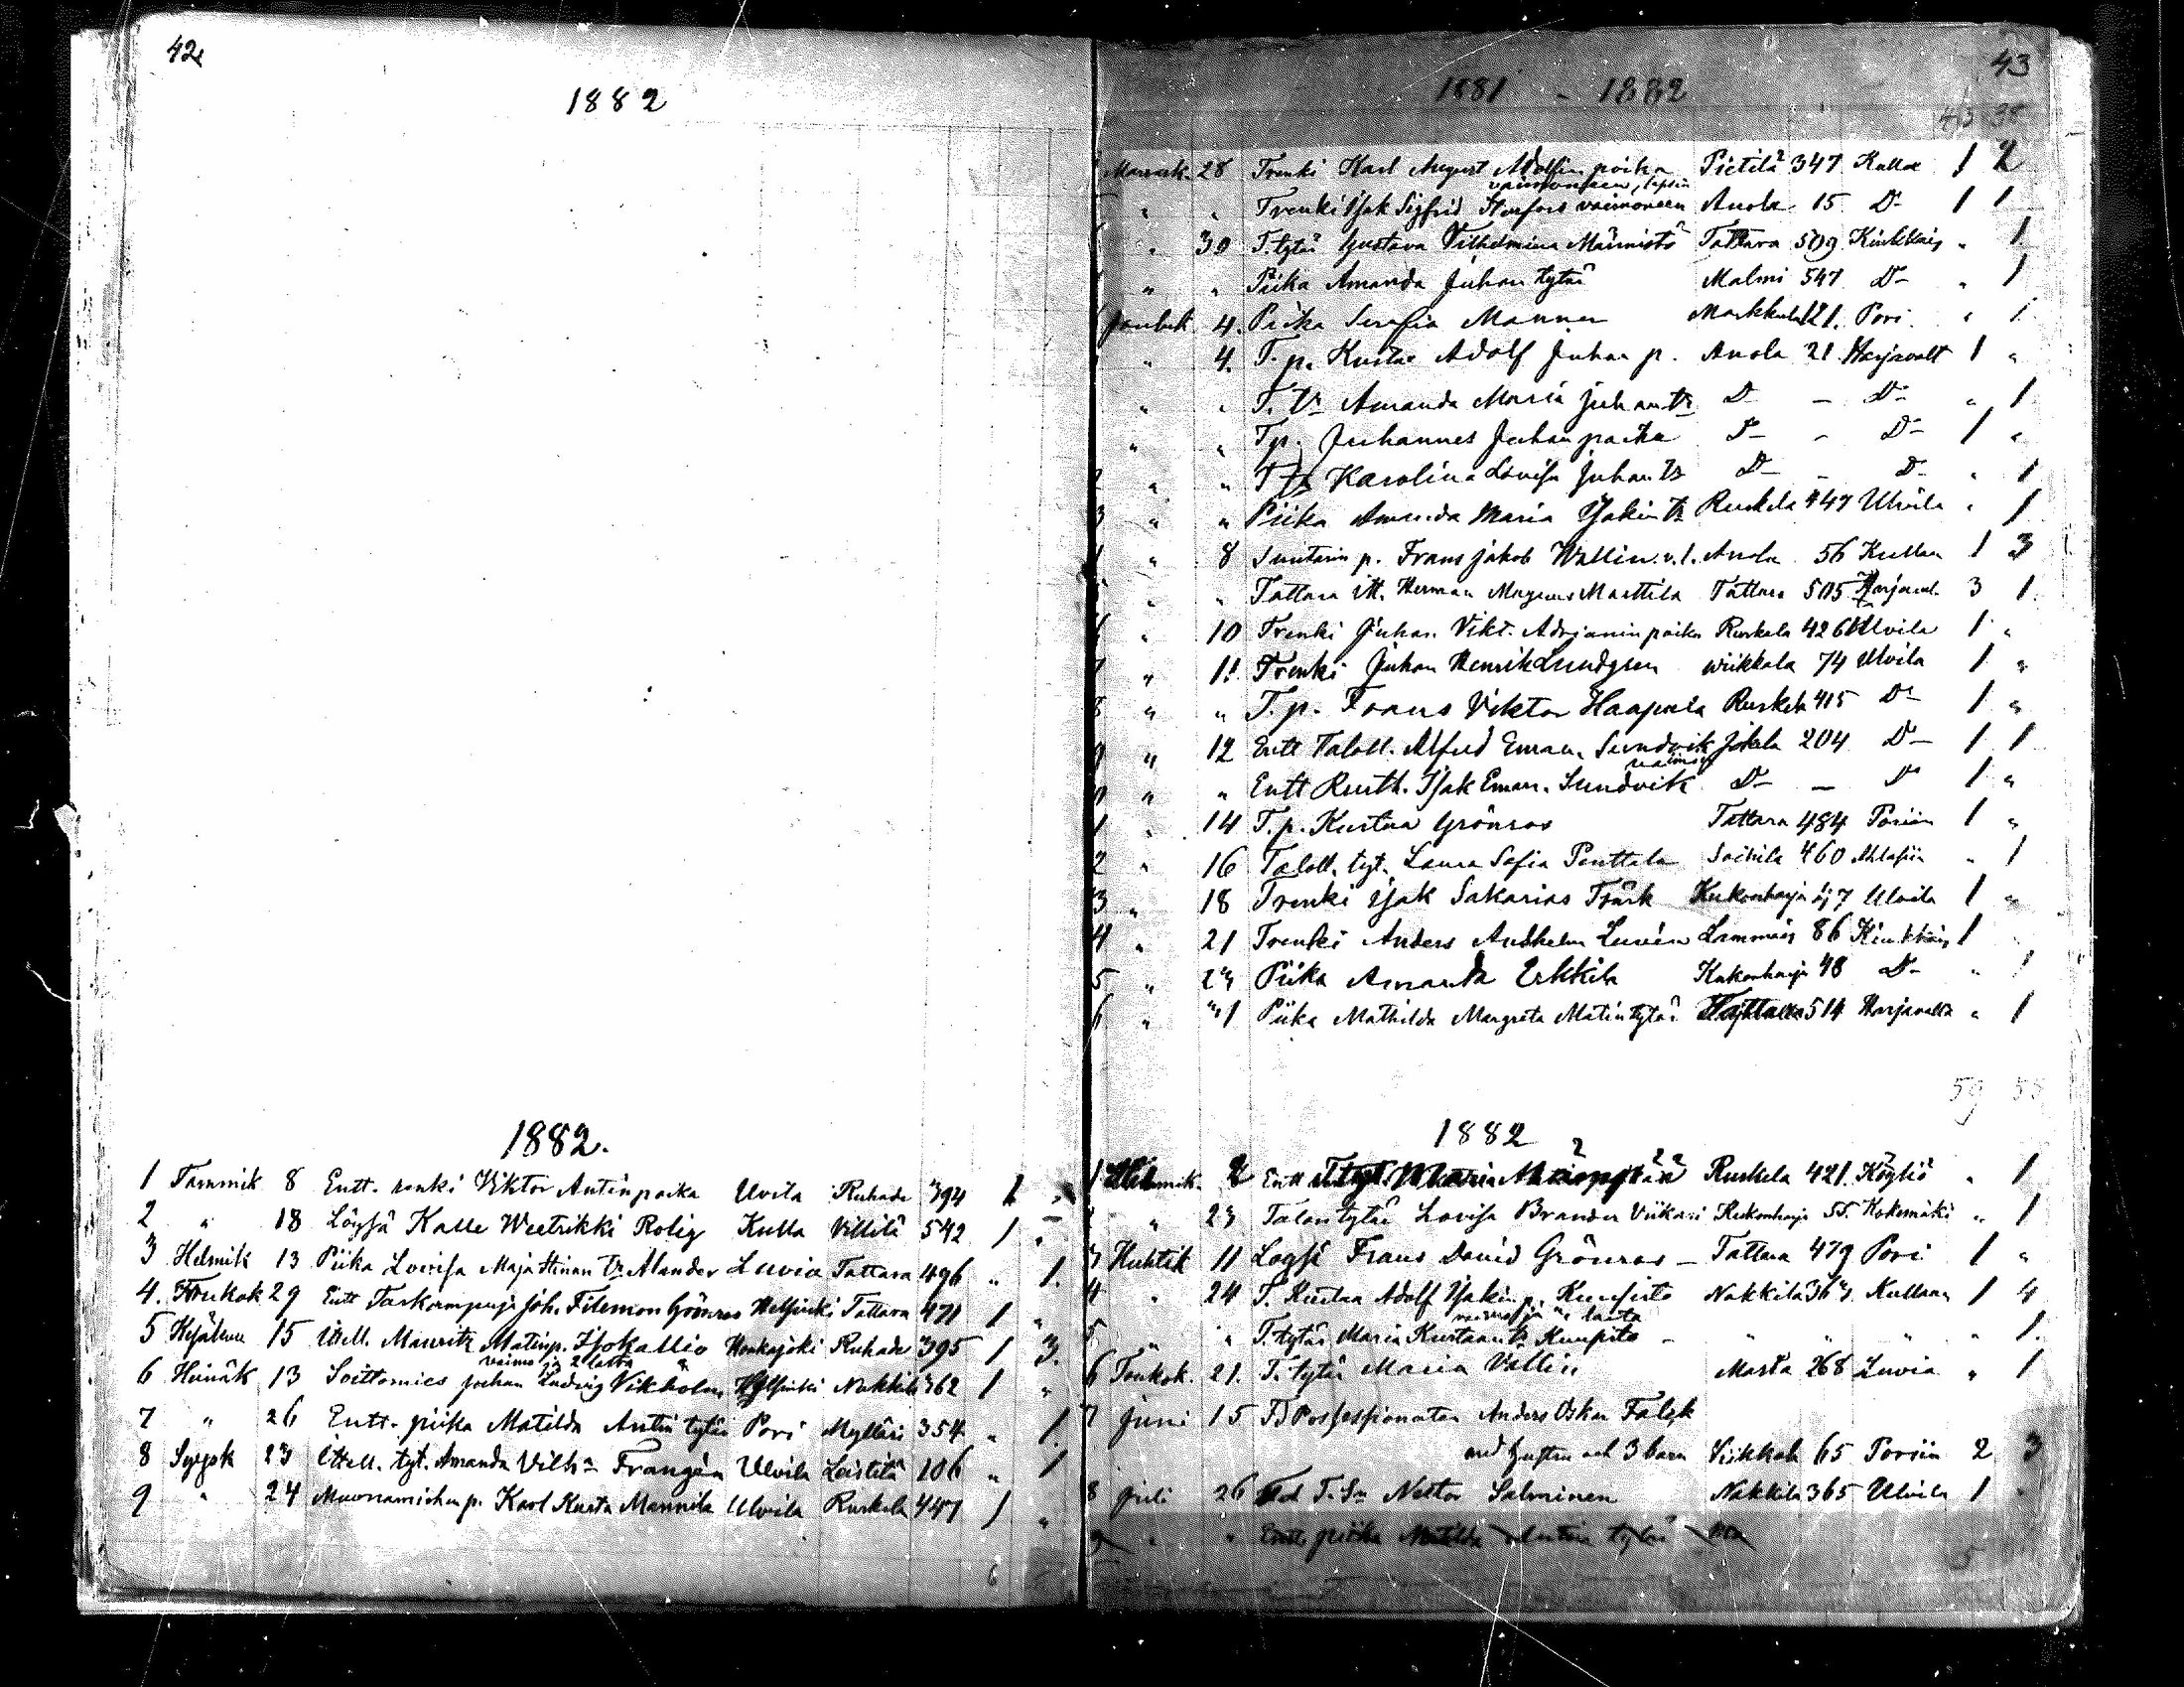 42
1882
1882.
1 Tammik 8 Entt. renki Viktor Antinpoika Ulvila Ruhade 394 1 "
2 " 18 Löysä Kalle Weetrikki Rolig Kulla Villilä 542 1 "
3 Helmik 13 Piika Lovisa Maja Stinan tr Alander Luvia Tattara 496 " 1.
4. Toukok 29 Entt Taskampuja Joh. Filemon Grönroos Helsinki Tattara 471 1 "
5 Kesäkuu 15 Ittell. Mauritz Matinp. Isokallio Honkajoki Ruhade 395 1 3.
vaimo ja 2 lasta
6 Heinäk 13 Soittomies Johan Ludvig Vikholm Helsinki Nakkila 362 1 "
7 " 26 Entt. piika Matilda Antin tytär Pori Mylläri 354 " 1.
8 Syysk 23 Ittell. tyt. Amanda Vilh:a Frangén Ulvila Leistilä 106 " 1
9 " 24 Muonamiehen p. Karl Kusta Mannila Ulvila Ruskela 447 1 "
6
43
1881 - 1882
43 38
Marrask. 28 Trenki Karl August Adolfin poika Pietilä 347 Kullaa 1 2
vaimoneen, lapsin
" " Trenki Isak Sigfrid Stenfors vaimoneen Anola 15 D:o 1 1
" 30 T. tytär Gustava Vilhelmina Männistö Tattara 509 Kiukkais " 1
" " Piika Amanda Juhan tytär Malmi 547 D:o " 1
Jouluk 4. Piika Serafia Manner Markkula 121. Pori " 1
" 4. T. p. Kustaa Adolf Juhan p. Anola 21 Harjavalt 1 "
" " T. tr Amanda Maria Juhan tr D:o - D:o " 1
" " T p. Juhannes Juhan poika D:o - D:o 1 "
2 " " T tr Karolina Lovisa Juhan tr D:o - D:o " 1
3 " " Piika Amanda Maria Isakin tr Ruskela 447 Ulvila " 1
" 8 Suutarin p. Frans Jakob Wallin v. l. Anola 56 Kullaa 1 3
" " Tattara itt. Herman Magnus Marttila Tattara 505 Harjaval. 3 1.
" 10 Trenki Juhan Vikt. Adrjanin poika Ruskela 426 Ulvila 1 "
7 " 11 Trenki Juhan Henrik Lundgren Wiikkala 74 Ulvila 1 "
8 " " T. p. Frans Viktor Haapala Ruskela 415 D:o 1 "
9 " 12 Entt Taloll. Alfred Eman. Sundvik Jokela 204 D:o 1 1
vaimo
0 " " Entt Rusth. Isak Eman. Sundvik D:o - D:o 1 "
1 " 14 T. p. Kustaa Grönroos Tattara 484 Poriin 1 "
2 " 16 Taloll. tyt. Laura Sofia Penttala Soinila 460 Ahlaisiin " 1
3 " 18 Trenki Isak Sakarias Träsk Kukonharja 47 Ulvila 1 "
4 " 21 Trenki Anders Anshelm Lammais 86 Kiukkais 1 "
5 " 23 Piika Amanda Erkkila Kukonharja 48 D:o " 1
6 " "1 Piika Mathilda Margreta Matintytär Tattara 514 Harjavalta " 1
59 55
1882
1 Helmik. 8 Entt Ruskela 421. Köyliö " 1
" 23 Talon tytär Lovisa Brander Viikari Kukonharja 55. Kokemäki " 1
3 Huhtik 11 Loysä Frans David Grönroos - Tattara 479 Pori 1 "
4 " 24 T. Kustaa Adolf Isakin p. Kuusisto Nakkila 363. Kullaan 1 4
vaimo ja 4 lasta
5. " " T. tytär Maria Kustaan tr Kuusisto - " " " " 1.
6 Toukok. 21. T. tytär Maria Vallin Masia 268 Luvia " 1
7 Juni 15 Possessionaten Anders Oskar Falck
med hustru och 3 barn Viikkala 65 Poriin 2 3
8 Juli 26 T. Sn Nestor Salminen Nakkila 365 Ulvila 1 "
9 " " Entt piika Matilda Antin tytär
5